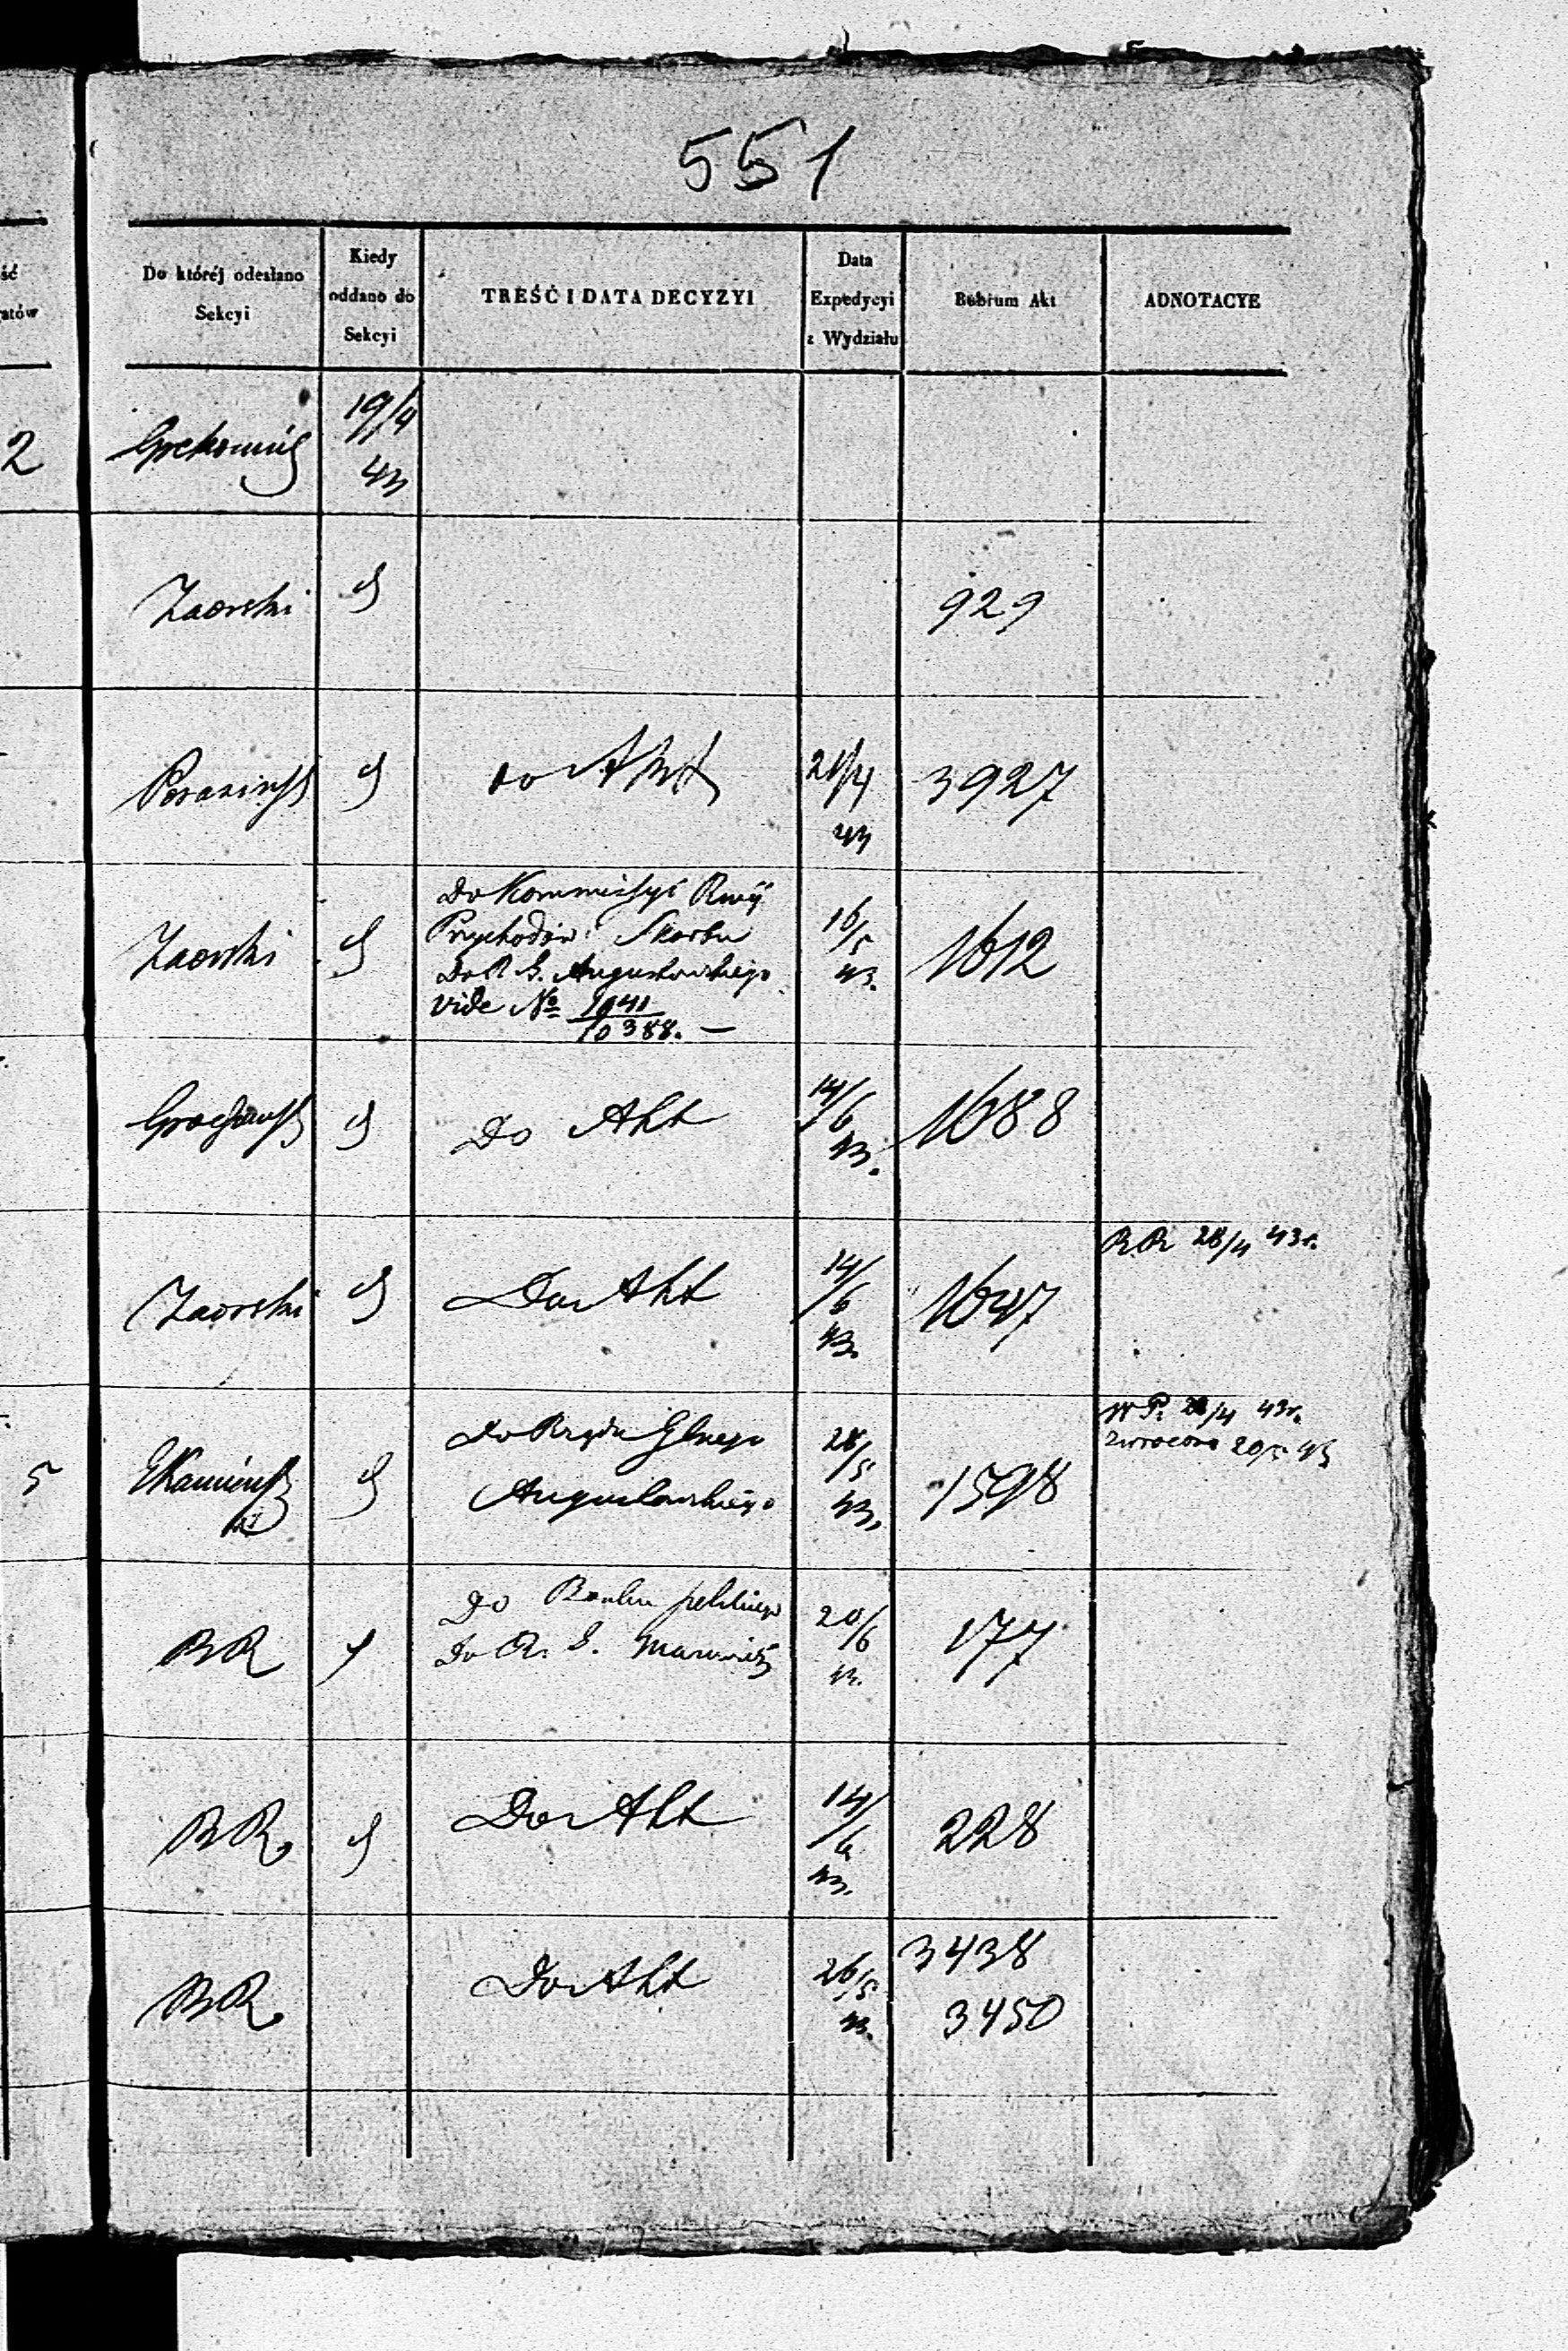 551
ść
atów
Do któréj odesłano
Sekcyi
Kiedy
oddano do
Sekcyi
TREŚĆ I DATA DECYZYI
Data
Expedycyi
z Wydziału
Rubrum Akt
ADNOTACYE
2
19/4
43
Zaorski
929
do Akt
21/4
43
3927
Zaorski
Do Kommissyi Rwij
Przychodów i Skarbu
Do R. G. Augustowskiego
vide No 1041
10388. —
16/5
43.
1612
Do Akt
14/6
43.
1688
Zaorski
Do Akt
14/6
43.
1647
RR 28/4 43r.
5
Kamieński
Do Rządu Glnego
Augustowskiego
28/5
43.
1598
WP. 28/4 43r.
zwrócono 20/5 43
BR
Do Banku polskiego
Do R. G.
20/6
43.
177
BR.
Do Akt
14/6
43.
228
BR.
Do Akt
26/5
43.
3438
3450